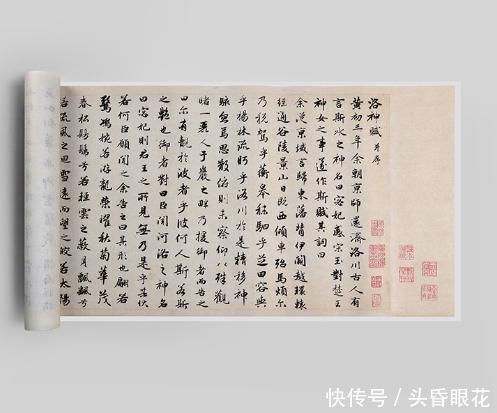 洛神賦 并序
黃初三年余朝京師還濟洛川古人有
言斯水之神名曰宓妃感宋玉對楚王
神女之事遂作斯賦其詞曰
余從京域言歸東藩背伊闕越轘轅
經通谷陵景山日既西傾車殆馬煩尔
乃稅駕乎蘅皋秣駟乎芝田容與
乎楊林流眄乎洛川於是精移神
駭忽焉思散俯則未察仰以殊觀
睹一麗人于巖之畔乃援御者而告之
曰尔有覿於彼者乎彼何人斯若斯
之艷也御者對曰臣聞河洛之神名
曰宓妃則君王之所見無乃是乎其狀
若何臣願聞之余告之曰其形也翩若
驚鴻婉若游龍榮曜秋菊華茂
春松髣髴兮若輕雲之蔽月飄颻兮
若流風之迴雪遠而望之皎若太陽
快传号 / 头昏眼花